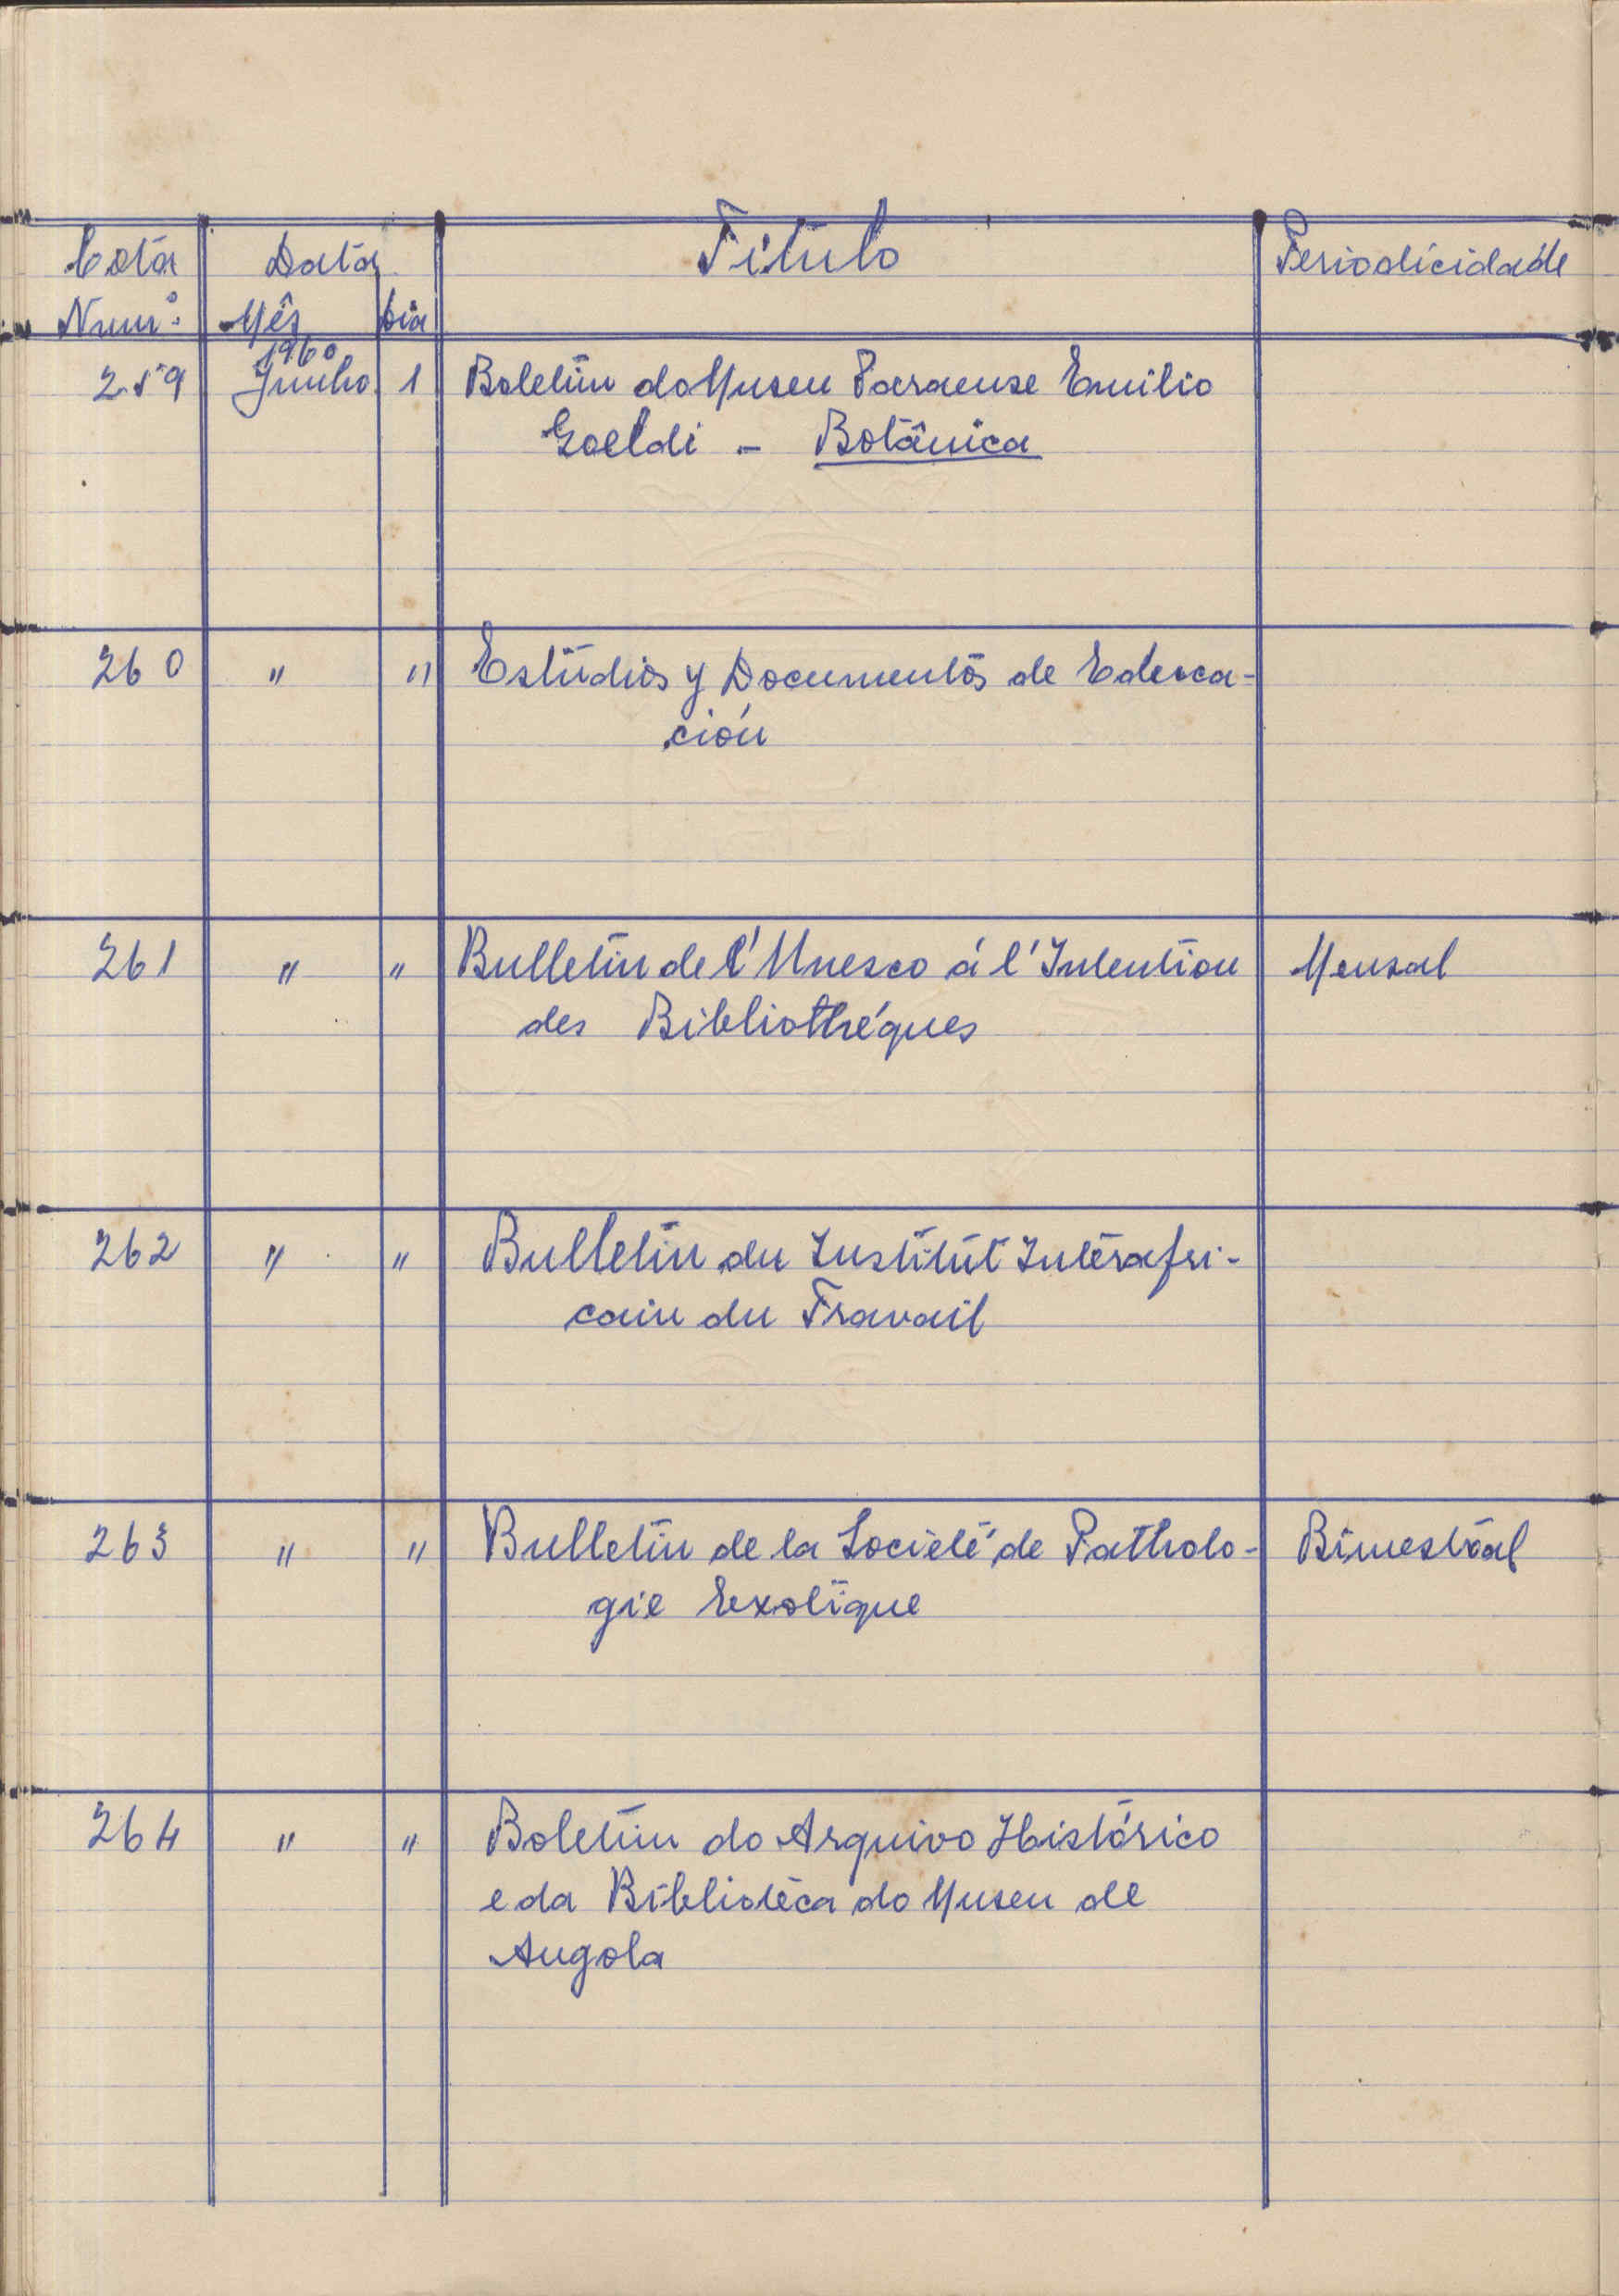 Cota Data Título Periodicidade
Num.º Mês Dia
1960
259 Junho 1 Boletim do Museu Paraense Emilio
Goeldi - Botânica
260 " " Estúdios y Documentos de Educa-
ción
261 " " Bulletin de l'Unesco á l'Intention Mensal
des Bibliothéques
262 " " Bulletin du Institút Interafri-
cain du Travail
263 " " Bulletin de la Societé de Patholo- Bimestral
gie Exotique
264 " " Boletim do Arquivo Histórico
e da Biblioteca do Museu de
Angola